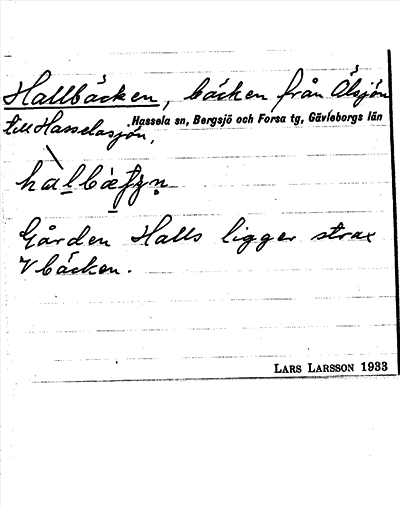 Hallbäcken, bäcken från Älsjön
till Hasselasjön,
Hassela sn, Bergsjö och Forsa tg, Gävleborgs län
Gården Halls ligger strax
V bäcken.
LARS LARSSON 1933